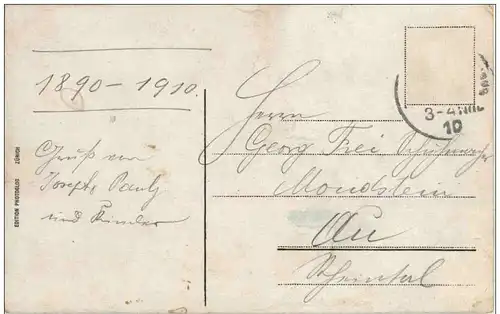 1890-1910.
Gruß von
Joseph, Pauly
und Kinder
EDITION PHOTOGLOB ZÜRICH
3-4 VIII
10
Herrn
Georg Frei
Mondstein
Au
Rheintal